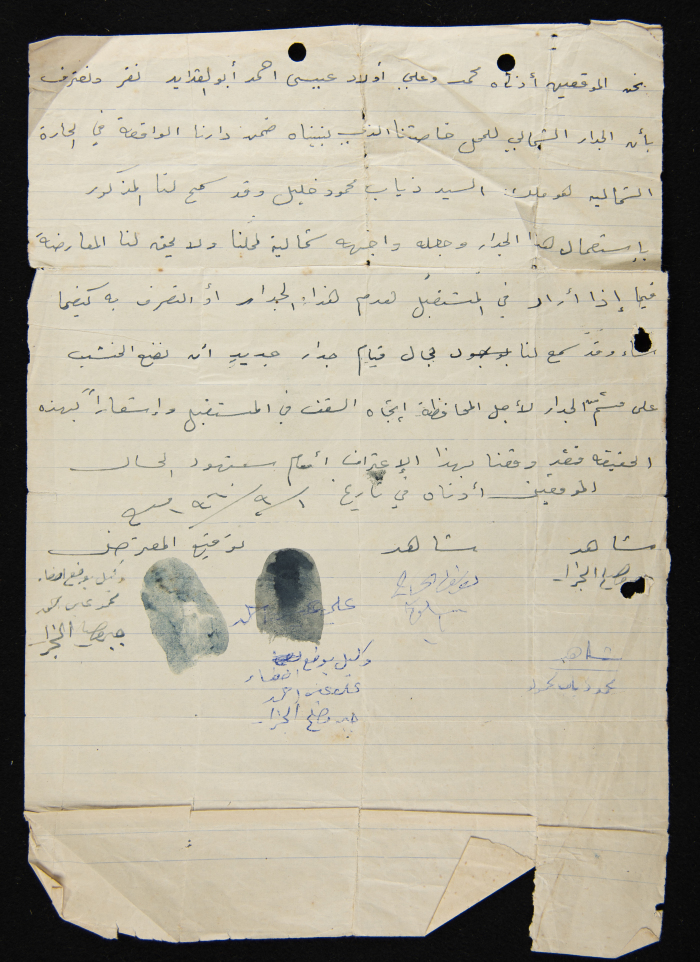 نحن الموقعين أدناه محمد وعلي أولاد عيسى احمد أبو لفدايد نقر ونعترف
بأن الجدار الشمالي للمحل خاصتنا الذي بنيناه ضمن دارنا الواقعة في الحارة
الشمالية هو ملك السيد ذياب محمود خليل وقد سمح لنا المذكور
بإستعمال هذا الجدار وجعله واجهه شمالية لمحلنا ولا يحق لنا المعارضة
فيما إذا أراد في المستقبل هدم هذا الجدار أو التصرف به كيفما
شاء وقد سمح لنا بمجال قيام جدار جديد أن نضع الخشب
على الجدار لأجل المحافظة إتجاه السقف في المستقبل وإشعاراً بهذه
الحقيقه فقد وقعنا بهذا الإعتراف أمام شهود الحال
الموقعين أدناه في تاريخ
شاهد
شاهد
توقيع المعترضين
الجزار
علي
شاهد
وكيل بوضع امضاء
محمد
الجزار
وكيل بوضع امضاء
الجزار